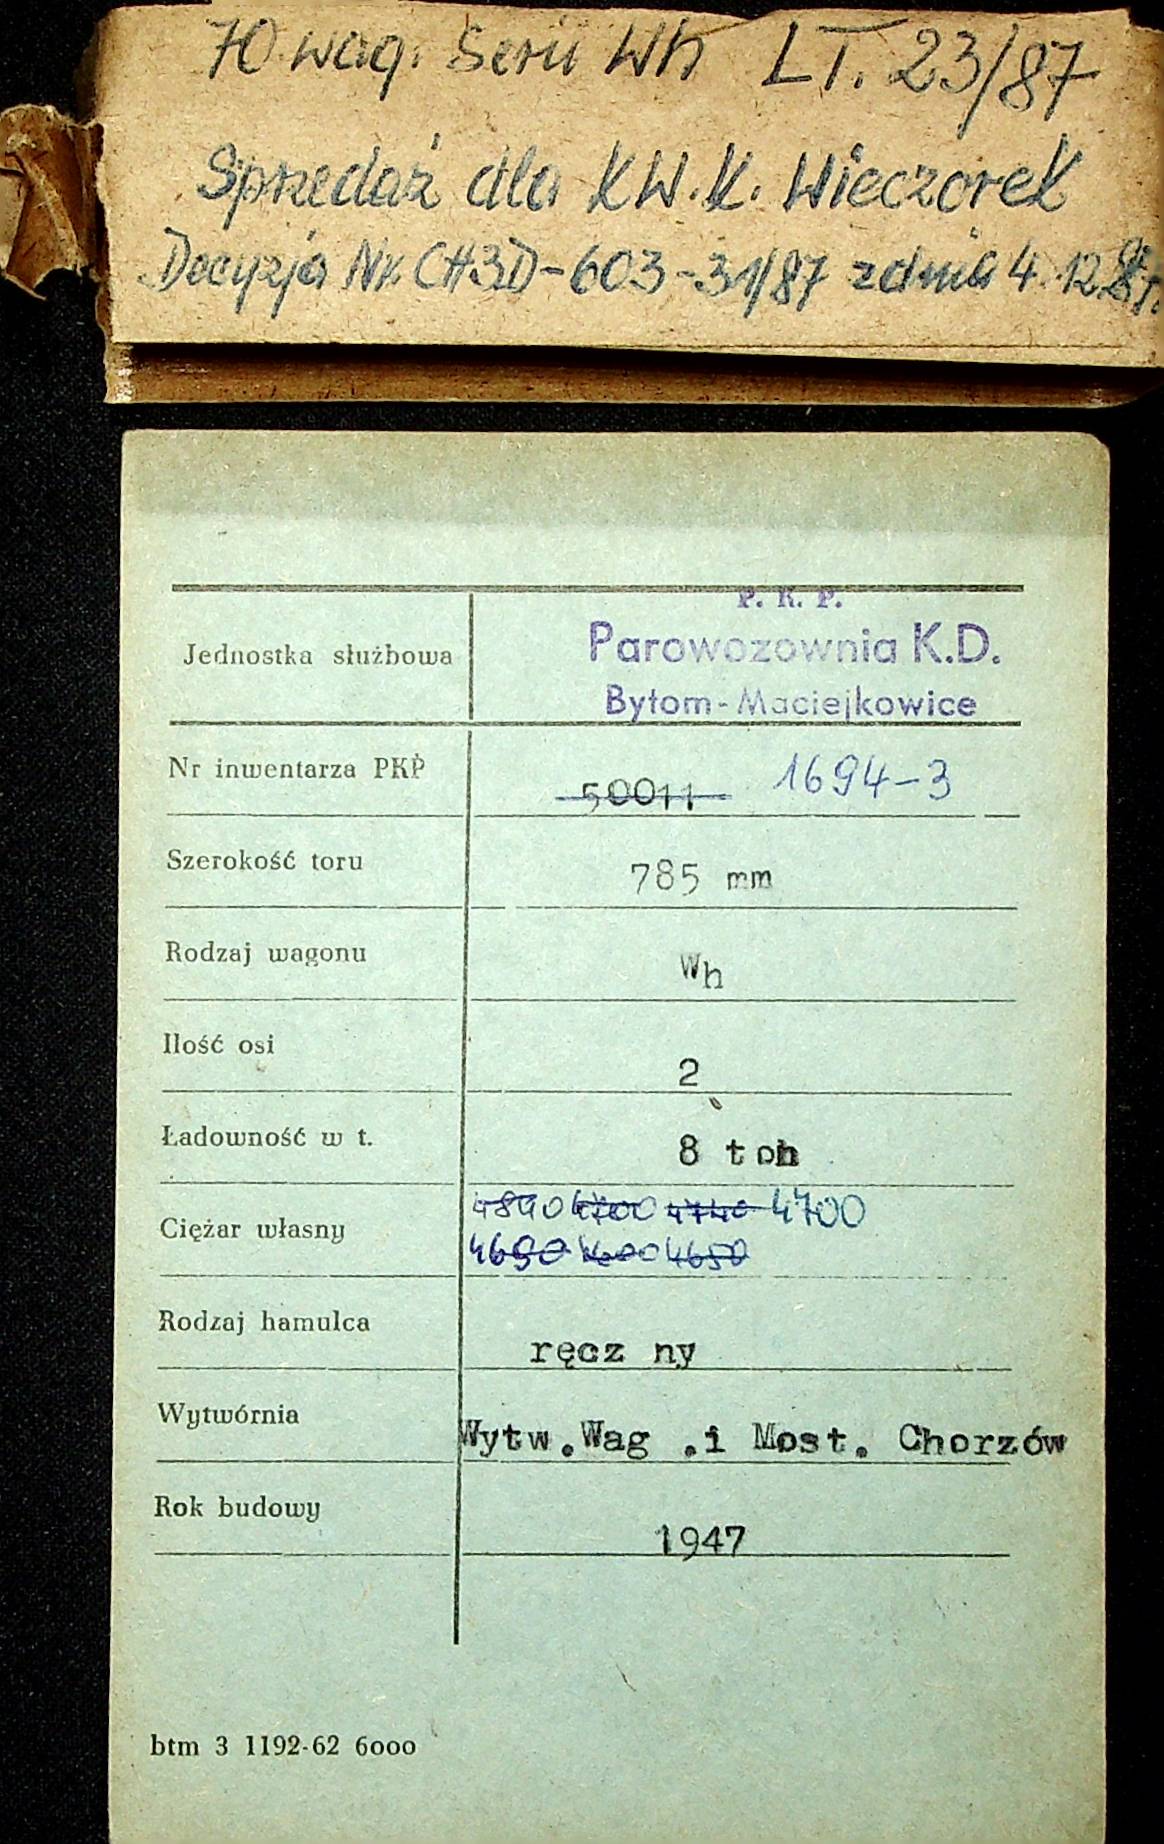 70 wag. Serii Wh LT. 23/87
Sprzedaż dla KW.K. Wieczorek
Decyzja Nr. CH3D-603-31/87 z dnia 4.12
P. K. P.
Jednostka służbowa Parowozownia K.D.
Bytom-Maciejkowice
Nr inwentarza PKP 50011 1694-3
Szerokość toru 785 mm
Rodzaj wagonu Wh
Ilość osi 2
Ładowność w t. 8 ton
4840 4700 4740 4700
Ciężar własny 4690 4600 4650
Rodzaj hamulca ręcz ny
Wytwórnia Wytw.Wag .i Most. Chorzów
Rok budowy 1947
btm 3 1192-62 6000